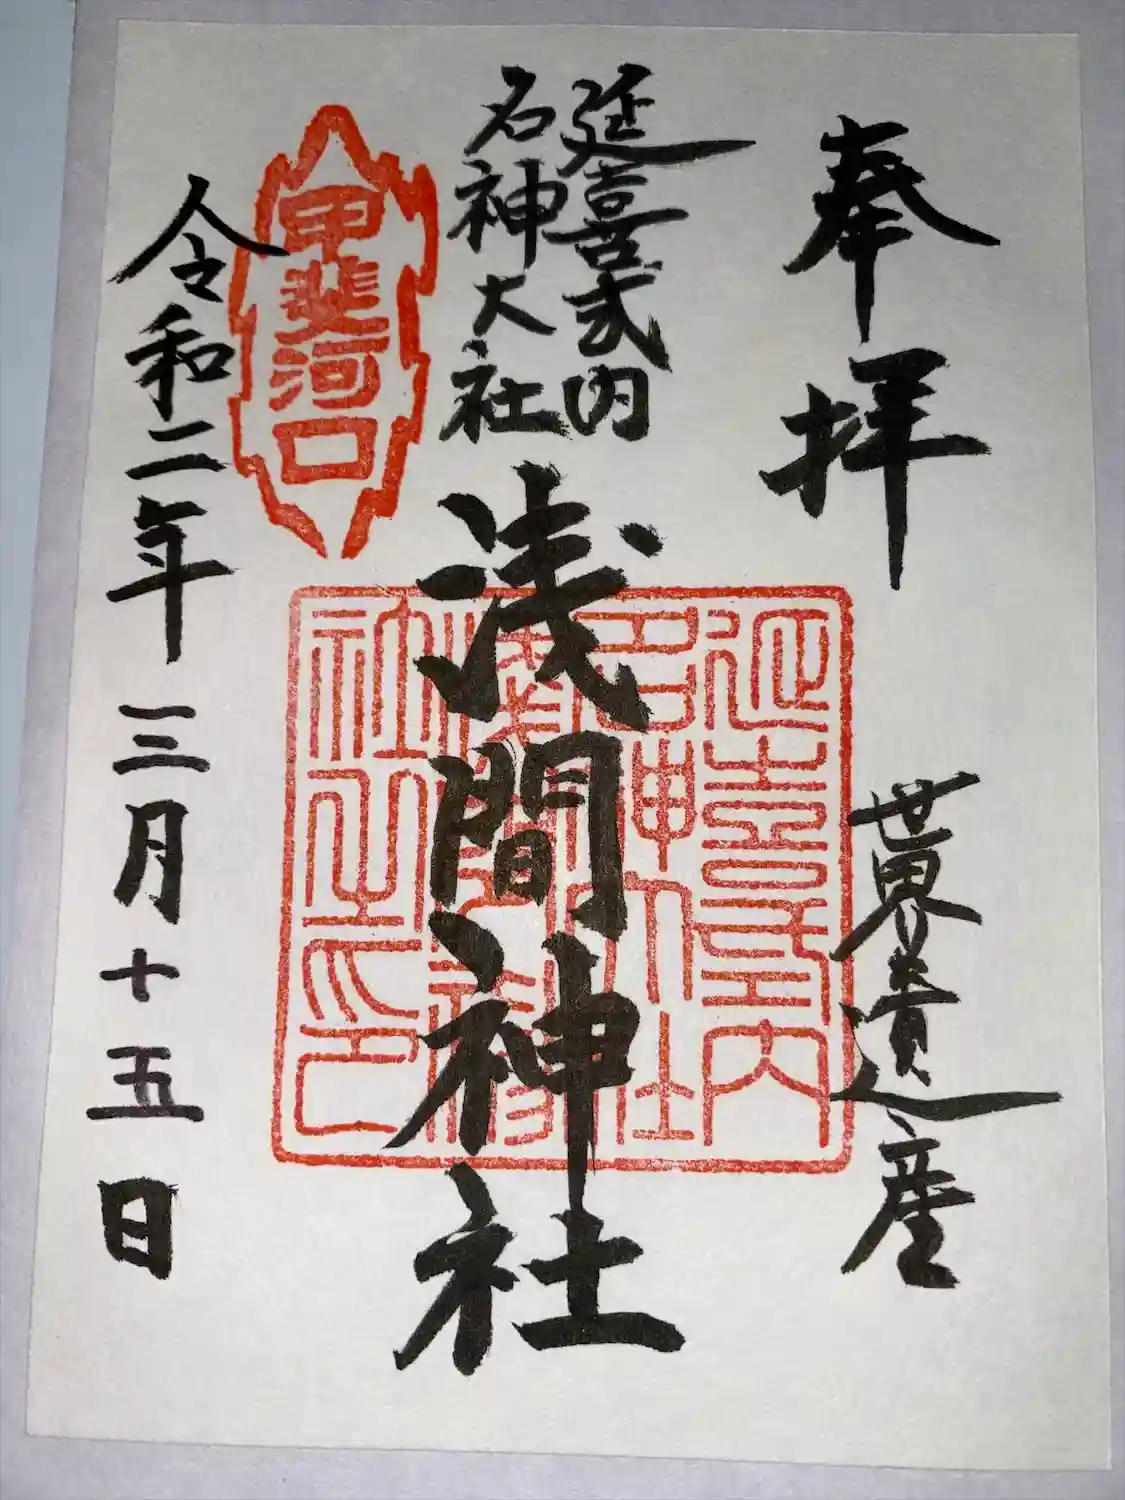 奉拝
世界遺産
延喜式内
名神大社
浅間神社
甲斐河口
延喜式内
名神大社
浅間神
社之印
令和二年三月十五日